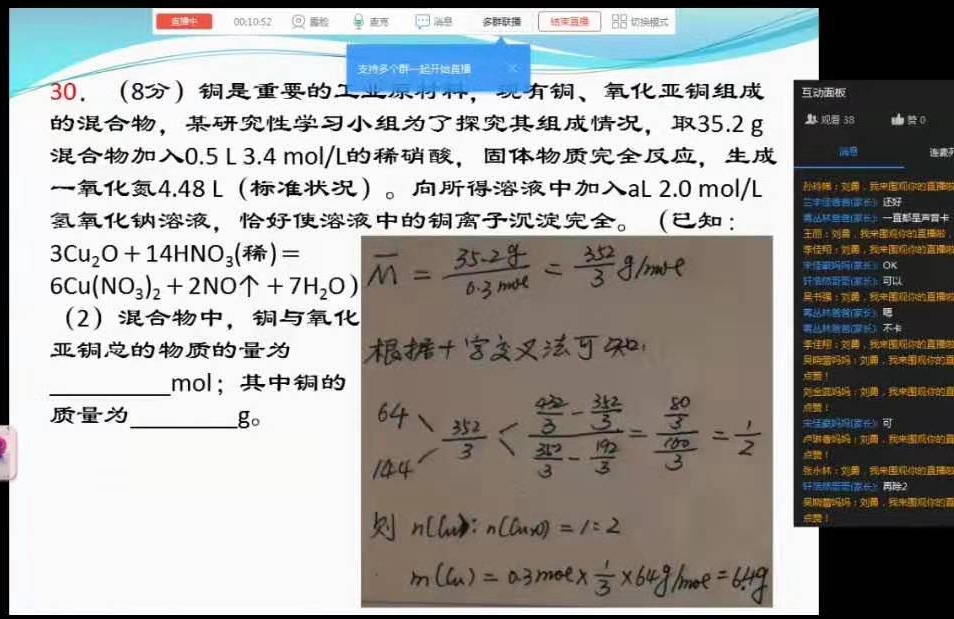 直播中 00:10:52 露脸 麦克 消息 多群联播 结束直播 切换模式
支持多个群一起开始直播
30. （8分）铜是重要的工业原材料，现有铜、氧化亚铜组成
的混合物，某研究性学习小组为了探究其组成情况，取35.2 g
混合物加入0.5 L 3.4 mol/L的稀硝酸，固体物质完全反应，生成
一氧化氮4.48 L（标准状况）。向所得溶液中加入aL 2.0 mol/L
氢氧化钠溶液，恰好使溶液中的铜离子沉淀完全。（已知：
3Cu₂O＋14HNO₃(稀)＝
6Cu(NO₃)₂＋2NO↑＋7H₂O）
（2）混合物中，铜与氧化
亚铜总的物质的量为
__________mol；其中铜的
质量为_________g。
M̄ = 35.2g/0.3mol = 352/3 g/mol
根据十字交叉法可知:
64
144
352/3 < (432/3 - 352/3)/(352/3 - 192/3) = (80/3)/(160/3) = 1/2
则 n(Cu): n(Cu₂O) = 1:2
m(Cu) = 0.3mol × 1/3 × 64g/mol = 6.4g
互动面板
观看 38 赞 0
消息
刘勇，我来围观你的直播啦
还好
一直都是声音卡
王丽：刘勇，我来围观你的直播啦
李佳翔：刘勇，我来围观你的直播啦
OK
可以
吴书强：刘勇，我来围观你的直播啦
嗯
不卡
李佳翔：刘勇，我来围观你的直播啦
刘勇，我来围观你的直
点赞！
刘勇，我来围观你的直
点赞！
可
刘勇，我来围观你的直
点赞！
张永林：刘勇，我来围观你的直播啦
再除2
刘勇，我来围观你的直
点赞！